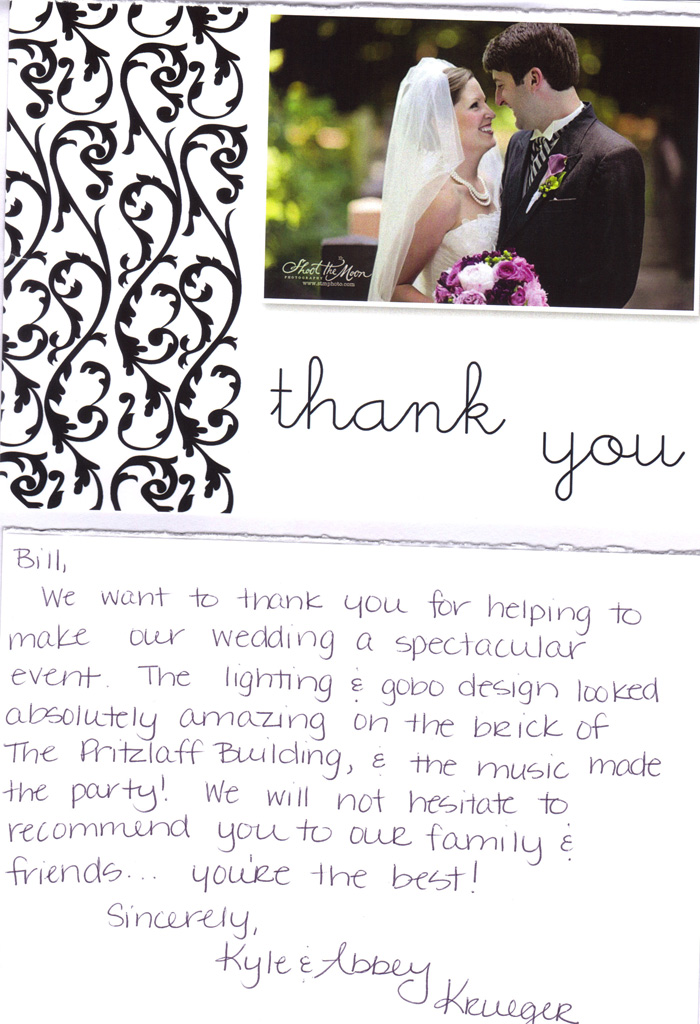 Shoot the Moon
PHOTOGRAPHY
www.stmphoto.com
thank
you
Bill,
We want to thank you for helping to
make our wedding a spectacular
event. The lighting & gobo design looked
absolutely amazing on the brick of
The Pritzlaff Building, & the music made
the party! We will not hesitate to
recommend you to our family &
friends... you're the best!
Sincerely,
Kyle & Abbey
Krueger